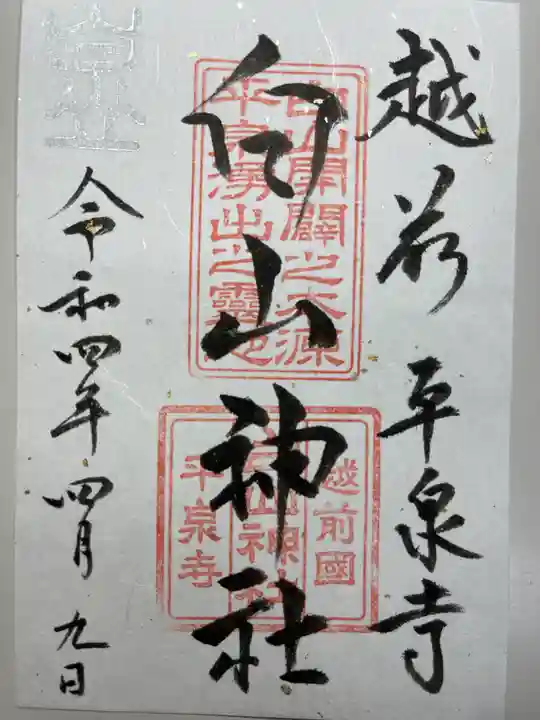 越前 平泉寺
白山神社
白山開闢之本源
平泉湧出之靈地
越前國
白山神社
平泉寺
令和四年 四月 九日